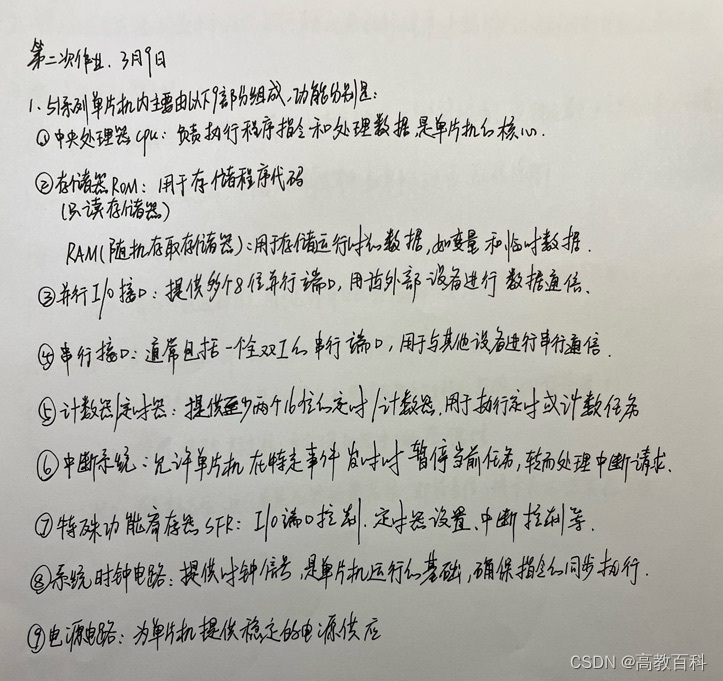 第二次作业. 3月9日
1. 51系列单片机内主要由以下9部分组成,功能分别是:
①中央处理器cpu: 负责执行程序指令和处理数据是单片机的核心.
②存储器ROM: 用于存储程序代码
(只读存储器)
RAM(随机存取存储器):用于存储运行时的数据,如变量和临时数据.
③并行I/O接口: 提供多个8位并行端口,用语外部设备进行数据通信.
④串行接口: 通常包括一个全双工的串行端口,用于与其他设备进行串行通信.
⑤计数器/定时器: 提供至少两个16位的定时/计数器,用于执行定时或计数任务
⑥中断系统:允许单片机在特定事件发时时暂停当前任务,转而处理中断请求.
⑦特殊功能寄存器SFR: I/O端口控制.定时器设置、中断控制等.
⑧系统时钟电路:提供时钟信号,是单片机运行的基础,确保指令的同步执行.
⑨电源电路: 为单片机提供稳定的电源供应
CSDN @高教百科